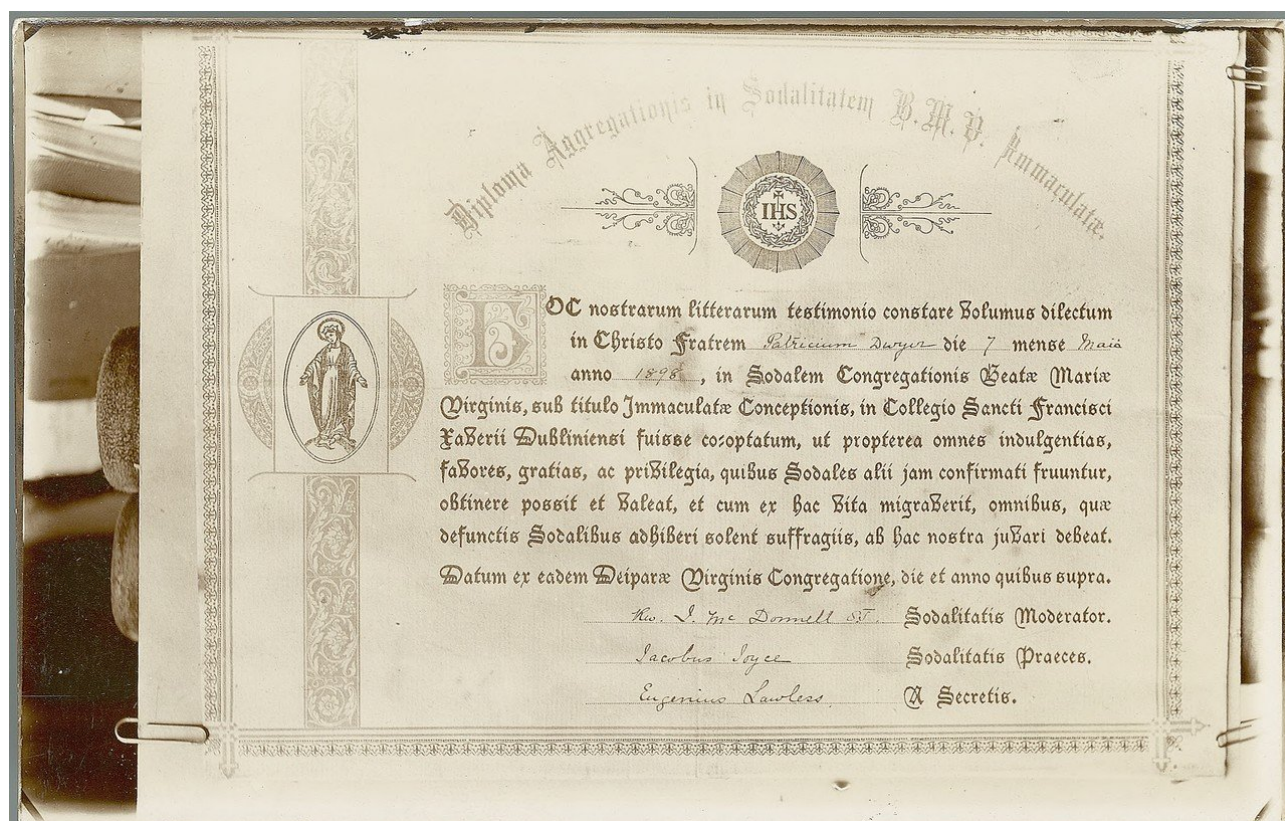 Diploma Aggregationis in Sodalitatem B.M.V. Immaculatæ.
IHS
HOC nostrarum litterarum testimonio constare volumus dilectum
in Christo Fratrem Patricium Dwyer die 7 mense Maii
anno 1898, in Sodalem Congregationis Beatæ Mariæ
Virginis, sub titulo Immaculatæ Conceptionis, in Collegio Sancti Francisci
Xaverii Dubliniensi fuisse co-optatum, ut propterea omnes indulgentias,
favores, gratias, ac privilegia, quibus Sodales alii jam confirmati fruuntur,
obtinere possit et valeat, et cum ex hac vita migraverit, omnibus, quæ
defunctis Sodalibus adhiberi solent suffragiis, ab hac nostra juvari debeat.
Datum ex eadem Deiparæ Virginis Congregatione, die et anno quibus supra.
Rev. J. McDonnell SJ. Sodalitatis Moderator.
Jacobus Joyce Sodalitatis Praeces.
Eugenius Lawless A Secretis.